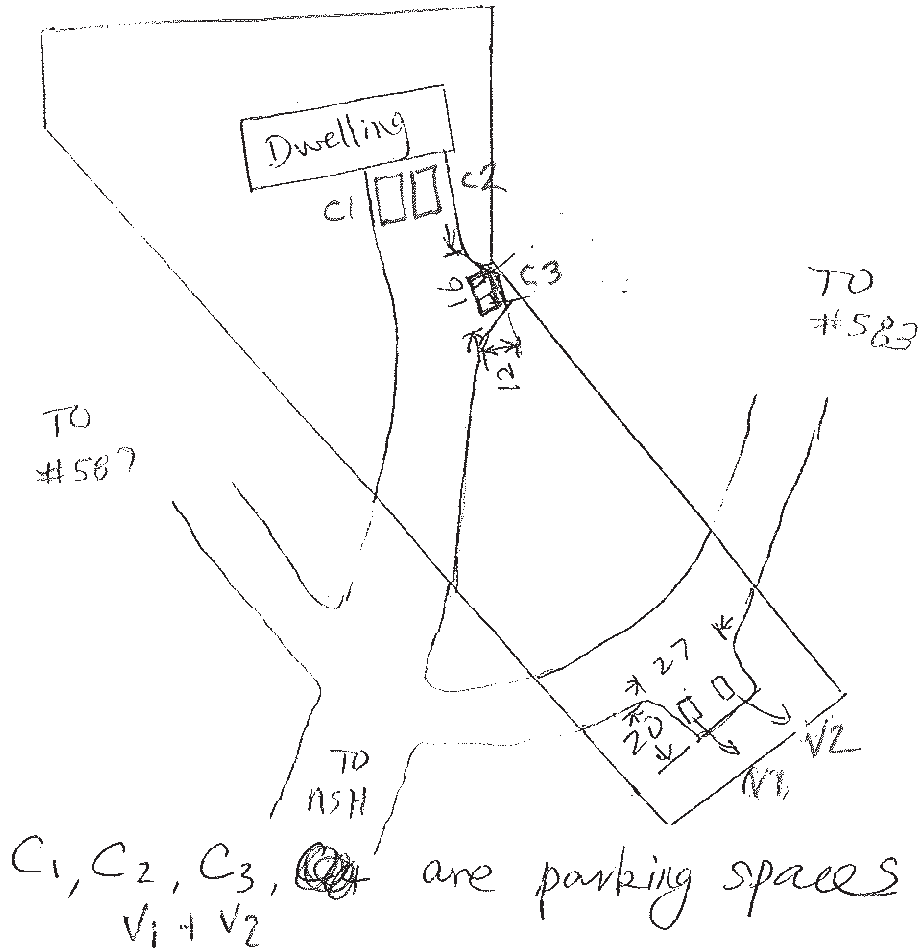 Dwelling
C1
C2
16
C3
12
TO
#583
TO
#587
27
20
V2
V1
TO
ASH
C1, C2, C3, are parking spaces
V1 + V2